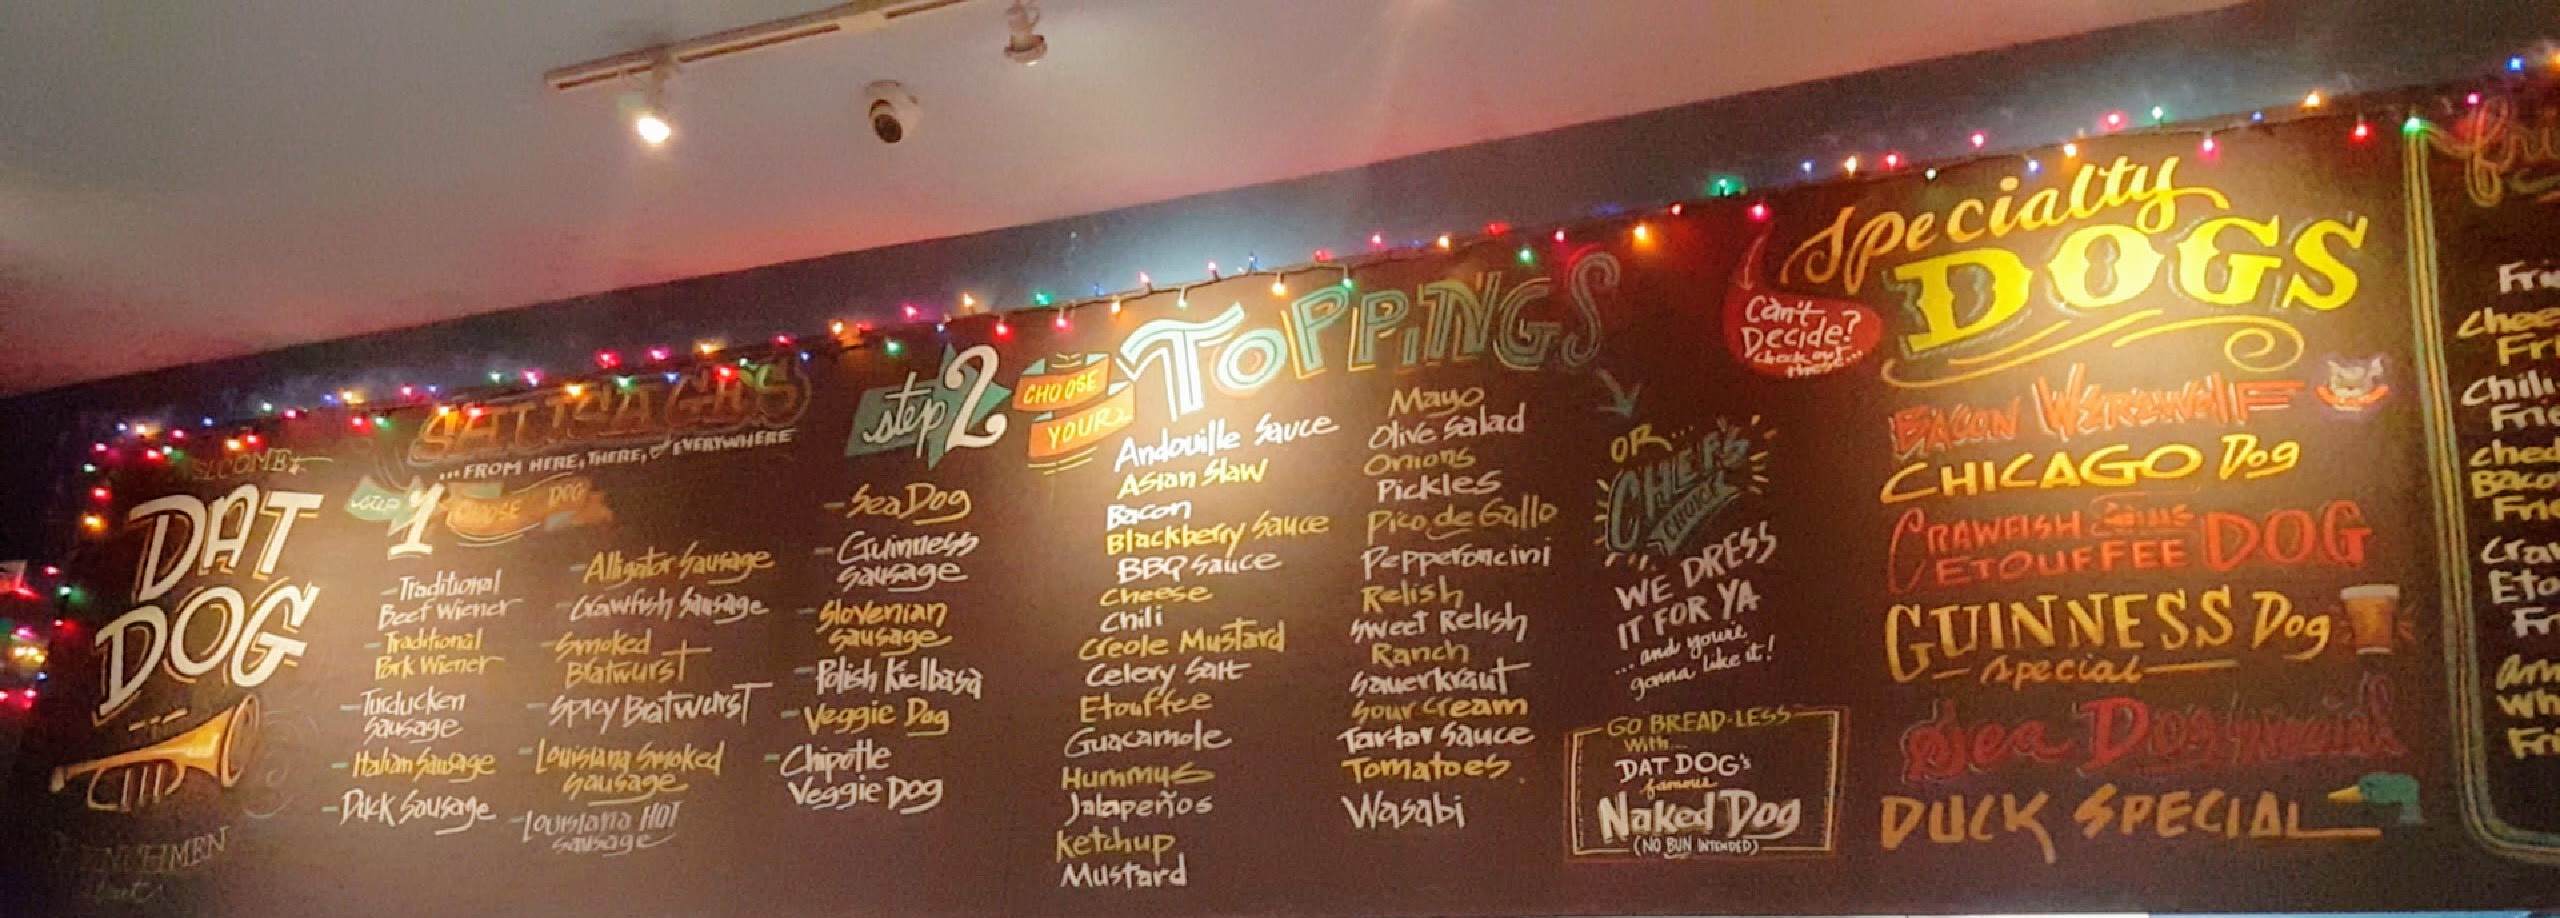 WELCOME
DAT
DOG
SAUSAGES
...FROM HERE, THERE, & EVERYWHERE
step 1 CHOOSE DOG
- Traditional
Beef Wiener
- Traditional
Pork Wiener
- Turducken
Sausage
- Italian Sausage
- Duck Sausage
- Alligator Sausage
- Crawfish Sausage
- Smoked
Bratwurst
- Spicy Bratwurst
- Louisiana Smoked
Sausage
- Louisiana HOT
Sausage
- Sea Dog
- Guinness
Sausage
- Slovenian
Sausage
- Polish Kielbasa
- Veggie Dog
- Chipotle
Veggie Dog
step 2 CHOOSE
YOUR
TOPPINGS
Andouille Sauce
Asian Slaw
Bacon
Blackberry Sauce
BBQ Sauce
Cheese
Chili
Creole Mustard
Celery Salt
Etouffee
Guacamole
Hummus
Jalapeños
Ketchup
Mustard
Mayo
Olive Salad
Onions
Pickles
Pico de Gallo
Pepperoncini
Relish
Sweet Relish
Ranch
Sauerkraut
Sour Cream
Tartar Sauce
Tomatoes
Wasabi
OR...
CHEF'S
CHOICE
WE DRESS
IT FOR YA
...and you're
gonna like it!
GO BREAD-LESS
With
DAT DOG's
famous
Naked Dog
(NO BUN INTENDED)
Can't
Decide?
Check out
these...
Specialty
DOGS
BACON WEREWOLF
CHICAGO Dog
CRAWFISH
ETOUFFEE DOG
GUINNESS Dog
special
Sea Dog special
DUCK SPECIAL